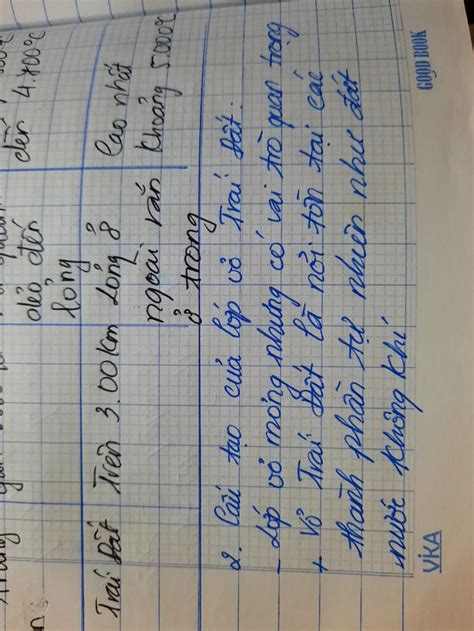 dẻo đến
lỏng
đến 4.700°C
Trái Đất
Trên 3.00km
Lỏng ở
ngoài rắn
ở trong
Cao nhất
khoảng 5.000°C
2. Cấu tạo của lớp vỏ Trái Đất.
- Lớp vỏ mỏng nhưng có vai trò quan trọng
+ Vỏ Trái Đất là nơi tồn tại các
thành phần tự nhiên như đất
nước không khí
VIKA
GOOD BOOK